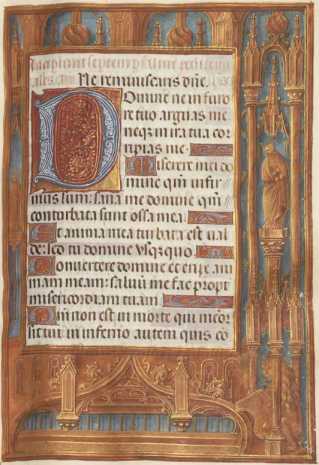 Incipiunt septem psalmi
ales. an. Ne reminiscaris dñe.
Domine ne in furo
re tuo arguas me
neqz in ira tua cor
ripias me.
Miserere mei do
mine qm̃ infir
mus sum: sana me domine qm̃
conturbata sunt ossa mea.
Et anima mea turbata est val
de: s; tu domine vsq; quo.
Conuertere domine et eripe ani
mam meam: saluũ me fac propt
misericordiam tuam.
Qm̃ non est in morte qui mẽor
sit tui: in inferno autem quis cõ